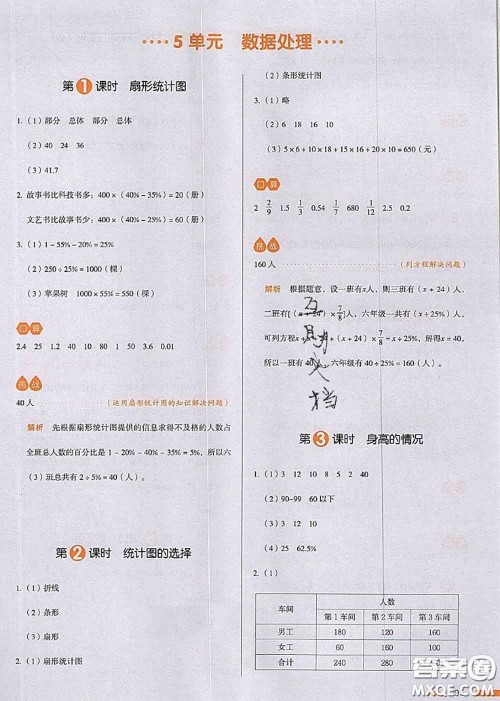 5 单元 数据处理
第1课时 扇形统计图
1.（1）部分 总体 部分 总体
（2）40 24 36
（3）41.7
2. 故事书比科技书多：400×（40%－35%）＝20（册）
文艺书比故事书少：400×（40%－25%）＝60（册）
3.（1）1－55%－20%＝25%
（2）250÷25%＝1000（棵）
（3）苹果树 1000×55%＝550（棵）
口算
2.4 25 1.2 40 10 80 1 50 3.6 0.01
挑战
40人 （运用扇形统计图的知识解决问题）
解析 先根据扇形统计图提供的信息求得不及格的人数占
全班总人数的百分比是1－20%－40%－35%＝5%，所以六
（3）班总共有2÷5%＝40（人）。
第2课时 统计图的选择
1.（1）折线
（2）条形
（3）扇形
2.（1）扇形统计图
（2）条形统计图
3.（1）略
（2）6 18 16 10
（3）5×6＋10×18＋15×16＋20×10＝650（元）
口算
2 2/9 1.5 1/3 0.54 1/4 680 1/12 2.5 0.2
挑战
160人 （列方程解决问题）
解析 根据题意，设一班有x人，则三班有（x＋24）人，
二班有[（x＋24）×7/8]人，六年级一共有（x÷25%）人。
可列方程x＋x＋24＋（x＋24）×7/8＝x÷25%，解得x＝40。
所以一班有40人，六年级有40÷25%＝160（人）。
第3课时 身高的情况
1.（1）3 12 10 8 5 2 40
（2）90-99 60以下
（4）25 62.5%
2.（1）
车间 人数
第1车间 第2车间 第3车间
男工 180 120 160
女工 60 160 100
合计 240 280
答案圈
MXQE.COM